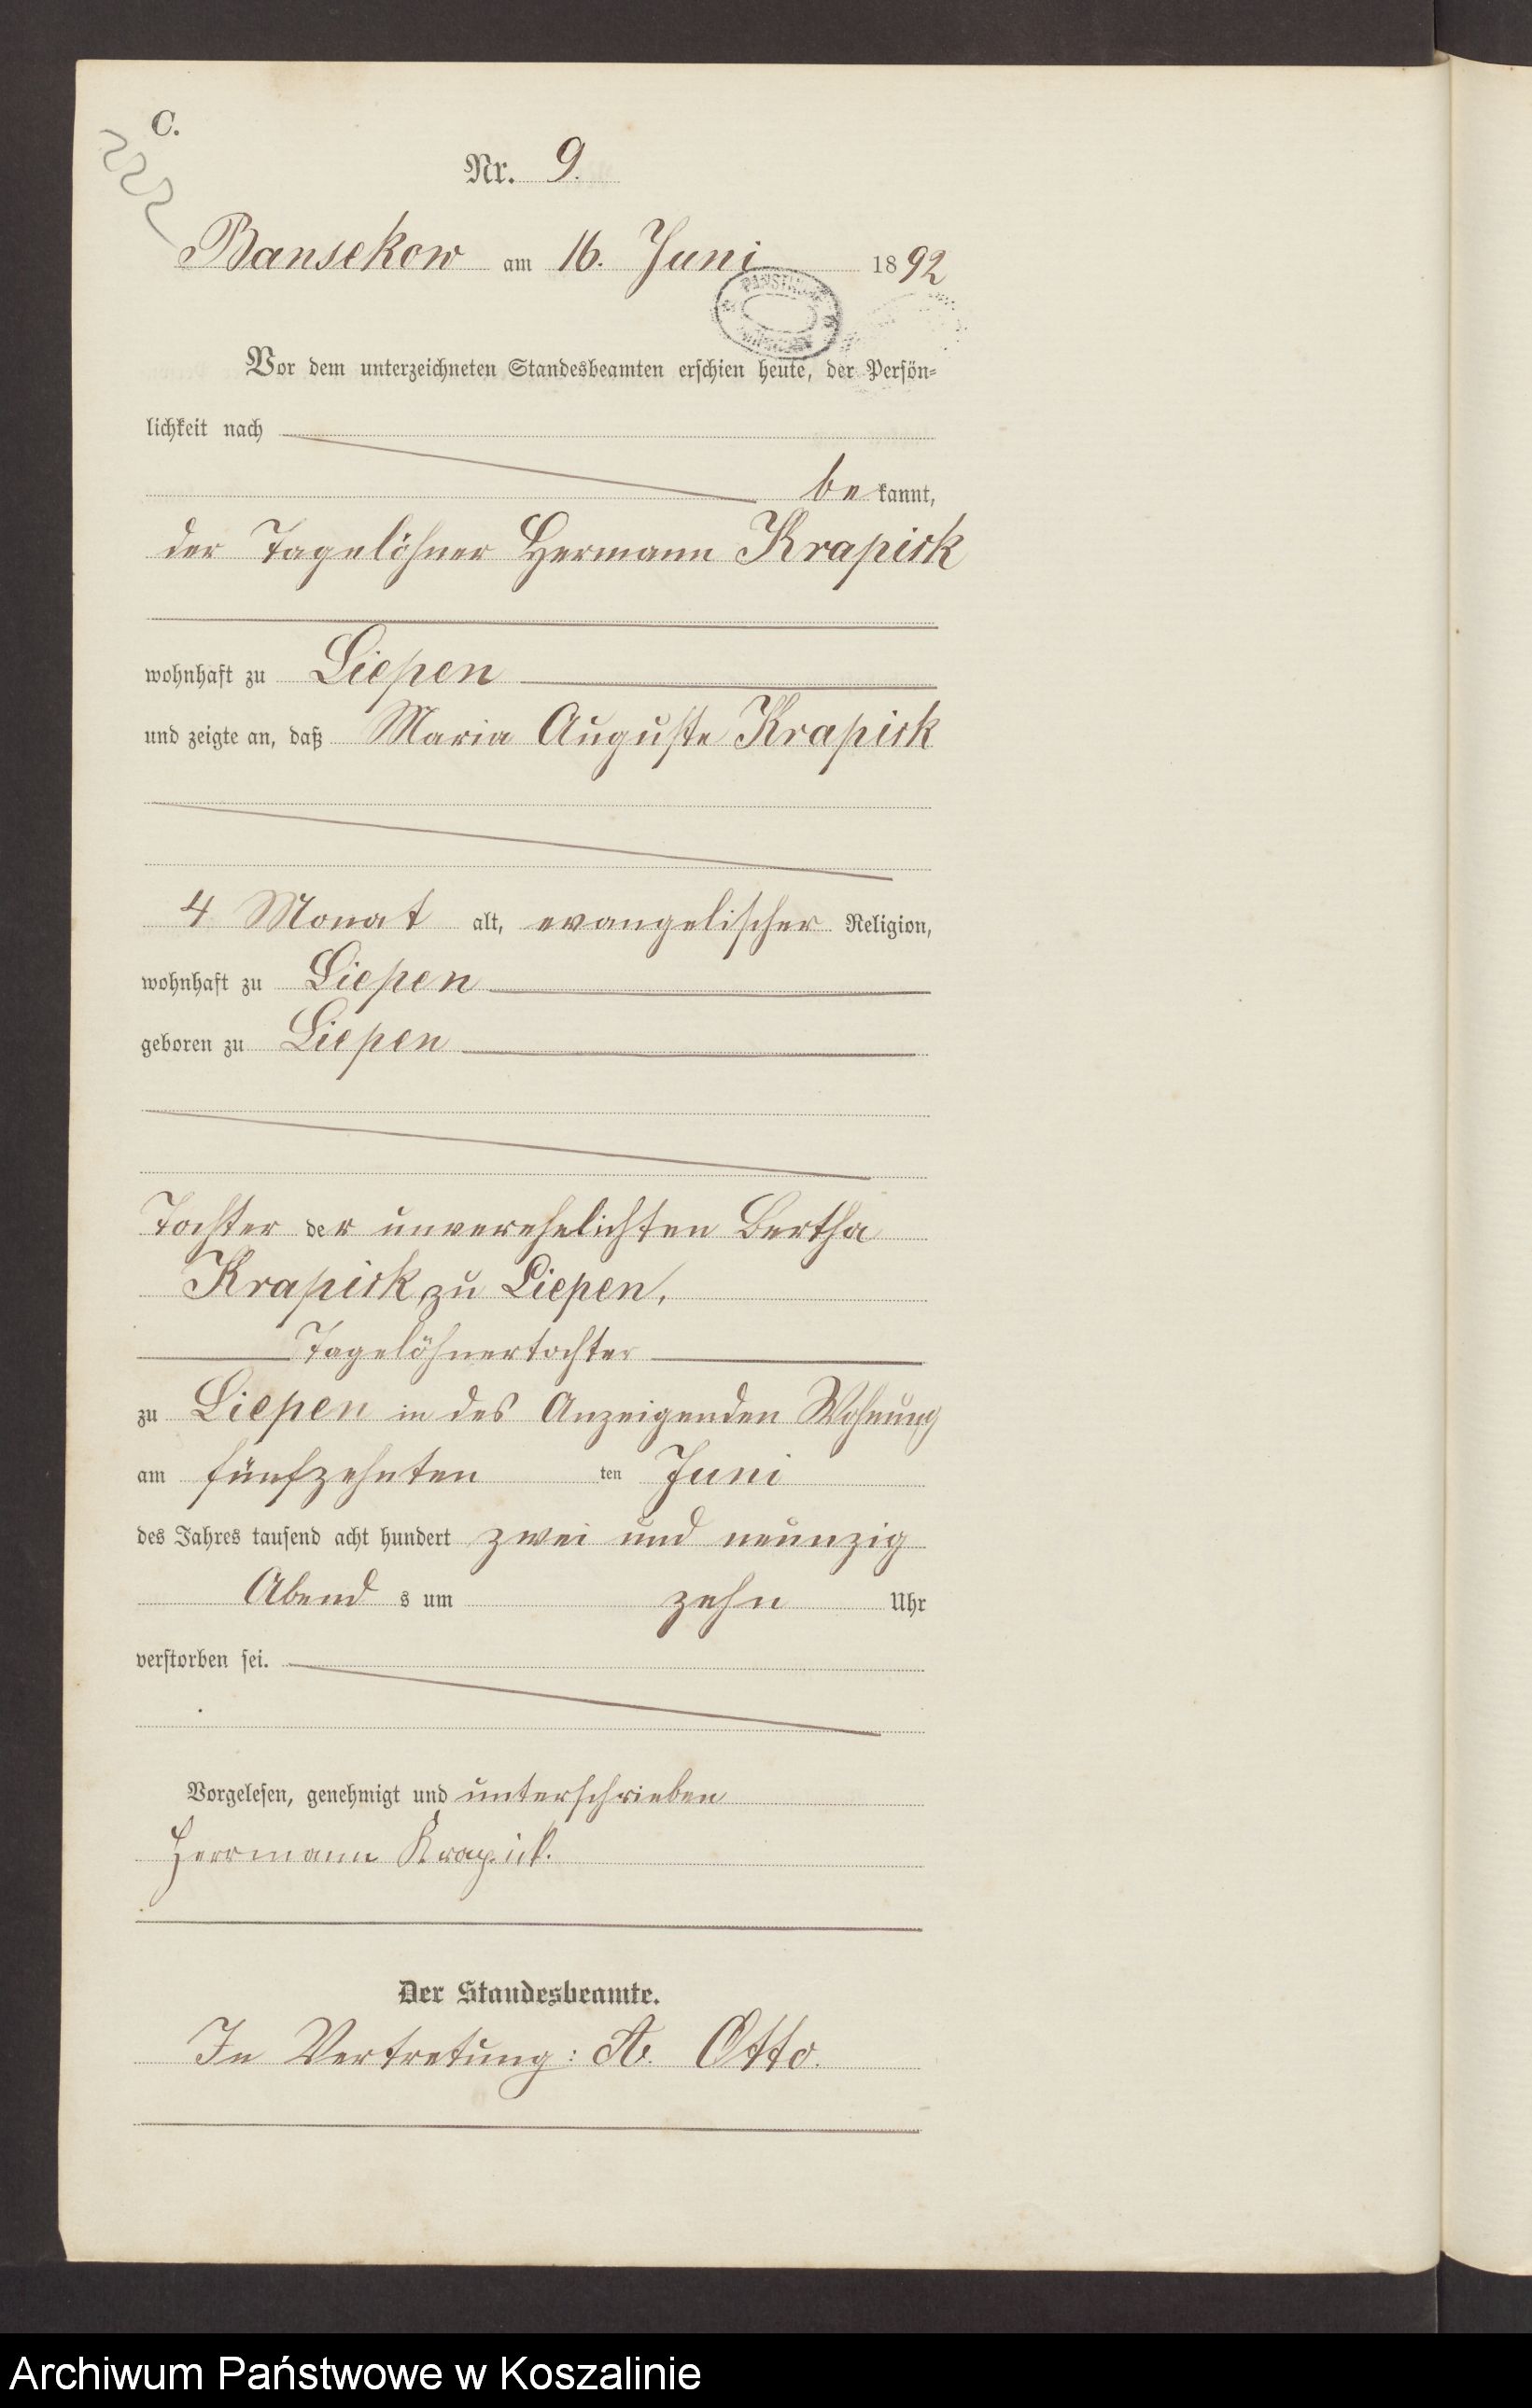 C.
Nr. 9.
Bansekow am 16. Juni 1892
Vor dem unterzeichneten Standesbeamten erschien heute, der Persön-
lichkeit nach
bekannt,
der Tagelöhner Hermann Krapick
wohnhaft zu Liepen
und zeigte an, daß Maria Auguste Krapick
4 Monat alt, evangelischer Religion,
wohnhaft zu Liepen
geboren zu Liepen
Tochter der unverehelichten Bertha
Krapick, zu Liepen,
Tagelöhnertochter
zu Liepen in des Anzeigenden Wohnung
am fünfzehnten ten Juni
des Jahres tausend acht hundert zwei und neunzig
Abend s um zehn Uhr
verstorben sei.
Vorgelesen, genehmigt und unterschrieben
Herrmann Krapick.
Der Standesbeamte.
In Vertretung: A. Otto.
Archiwum Państwowe w Koszalinie